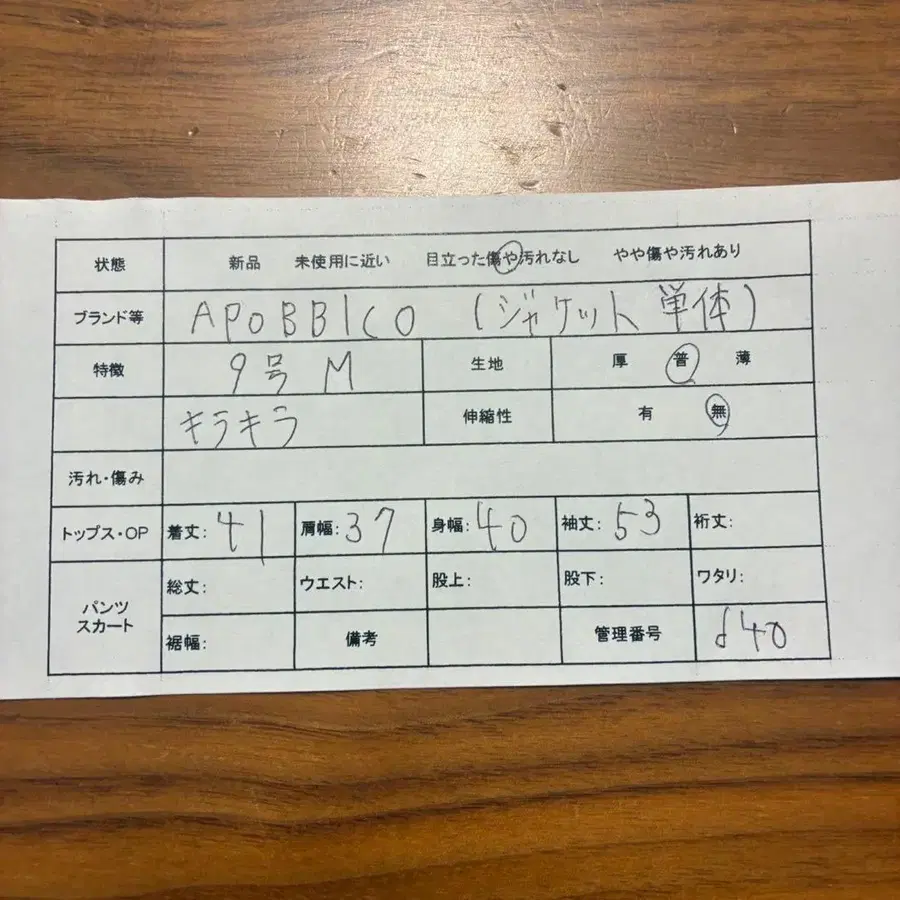 状態 新品 未使用に近い 目立った傷や汚れなし やや傷や汚れあり
ブランド等 APOBBICO (ジャケット単体)
特徴 9号 M 生地 厚 普 薄
キラキラ 伸縮性 有 無
汚れ・傷み
トップス・OP 着丈: 41 肩幅: 37 身幅: 40 袖丈: 53 裄丈:
パンツ
スカート
総丈: ウエスト: 股上: 股下: ワタリ:
裾幅: 備考 管理番号 d40